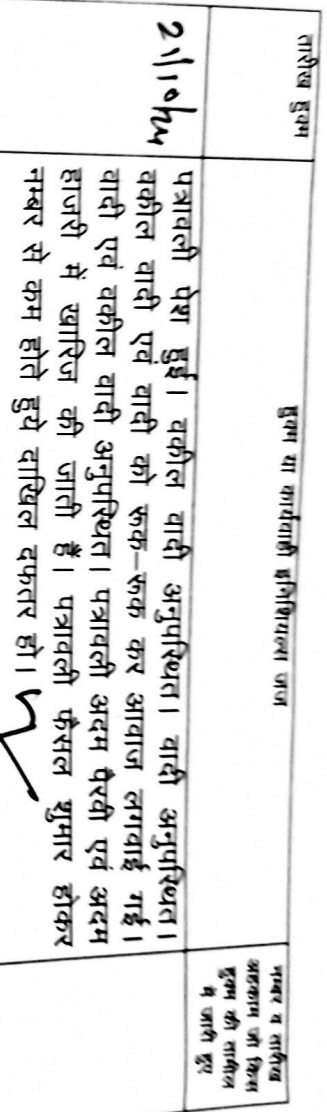 तारीख हुक्म
हुक्म या कार्यवाही इनिशियल्स जज
नम्बर व तारीख
अहकाम जो किस
हुक्म की तामील
में जारी हुए
पत्रावली पेश हुई। वकील वादी अनुपस्थित। वादी अनुपस्थित।
वकील वादी एवं वादी को रूक-रूक कर आवाज लगवाई गई।
वादी एवं वकील वादी अनुपस्थित। पत्रावली अदम पैरवी एवं अदम
हाजरी में खारिज की जाती हैं। पत्रावली फैसल शुमार होकर
नम्बर से कम होते हुये दाखिल दफतर हो।